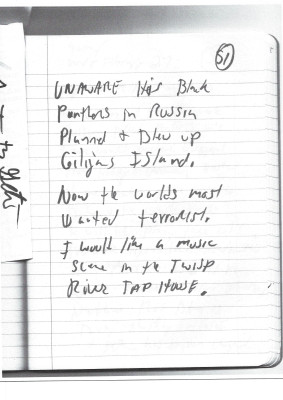 51
UNAWARE His Black
Panthers in RUSSIA
Planned & Blew up
Giligans ISland.
Now the worlds most
wanted terrorist.
I would like a music
Scene in the TWISP
River TAP HOUSE.